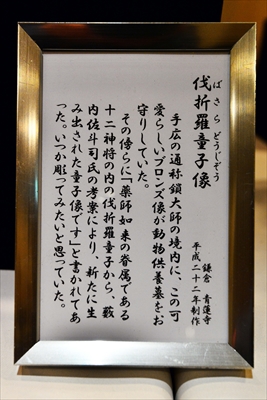 ばさらどうじぞう
伐折羅童子像
鎌倉 青蓮寺
平成二十二年制作
手広の通称鎖大師の境内に、この可
愛らしいブロンズ像が動物供養墓をお
守りしていた。
その傍らに「薬師如来の眷属である
十二神将の内の伐折羅童子から、藪
内佐斗司氏の考案により、新たに生
み出された童子像です」と書かれてあ
った。いつか彫ってみたいと思っていた。